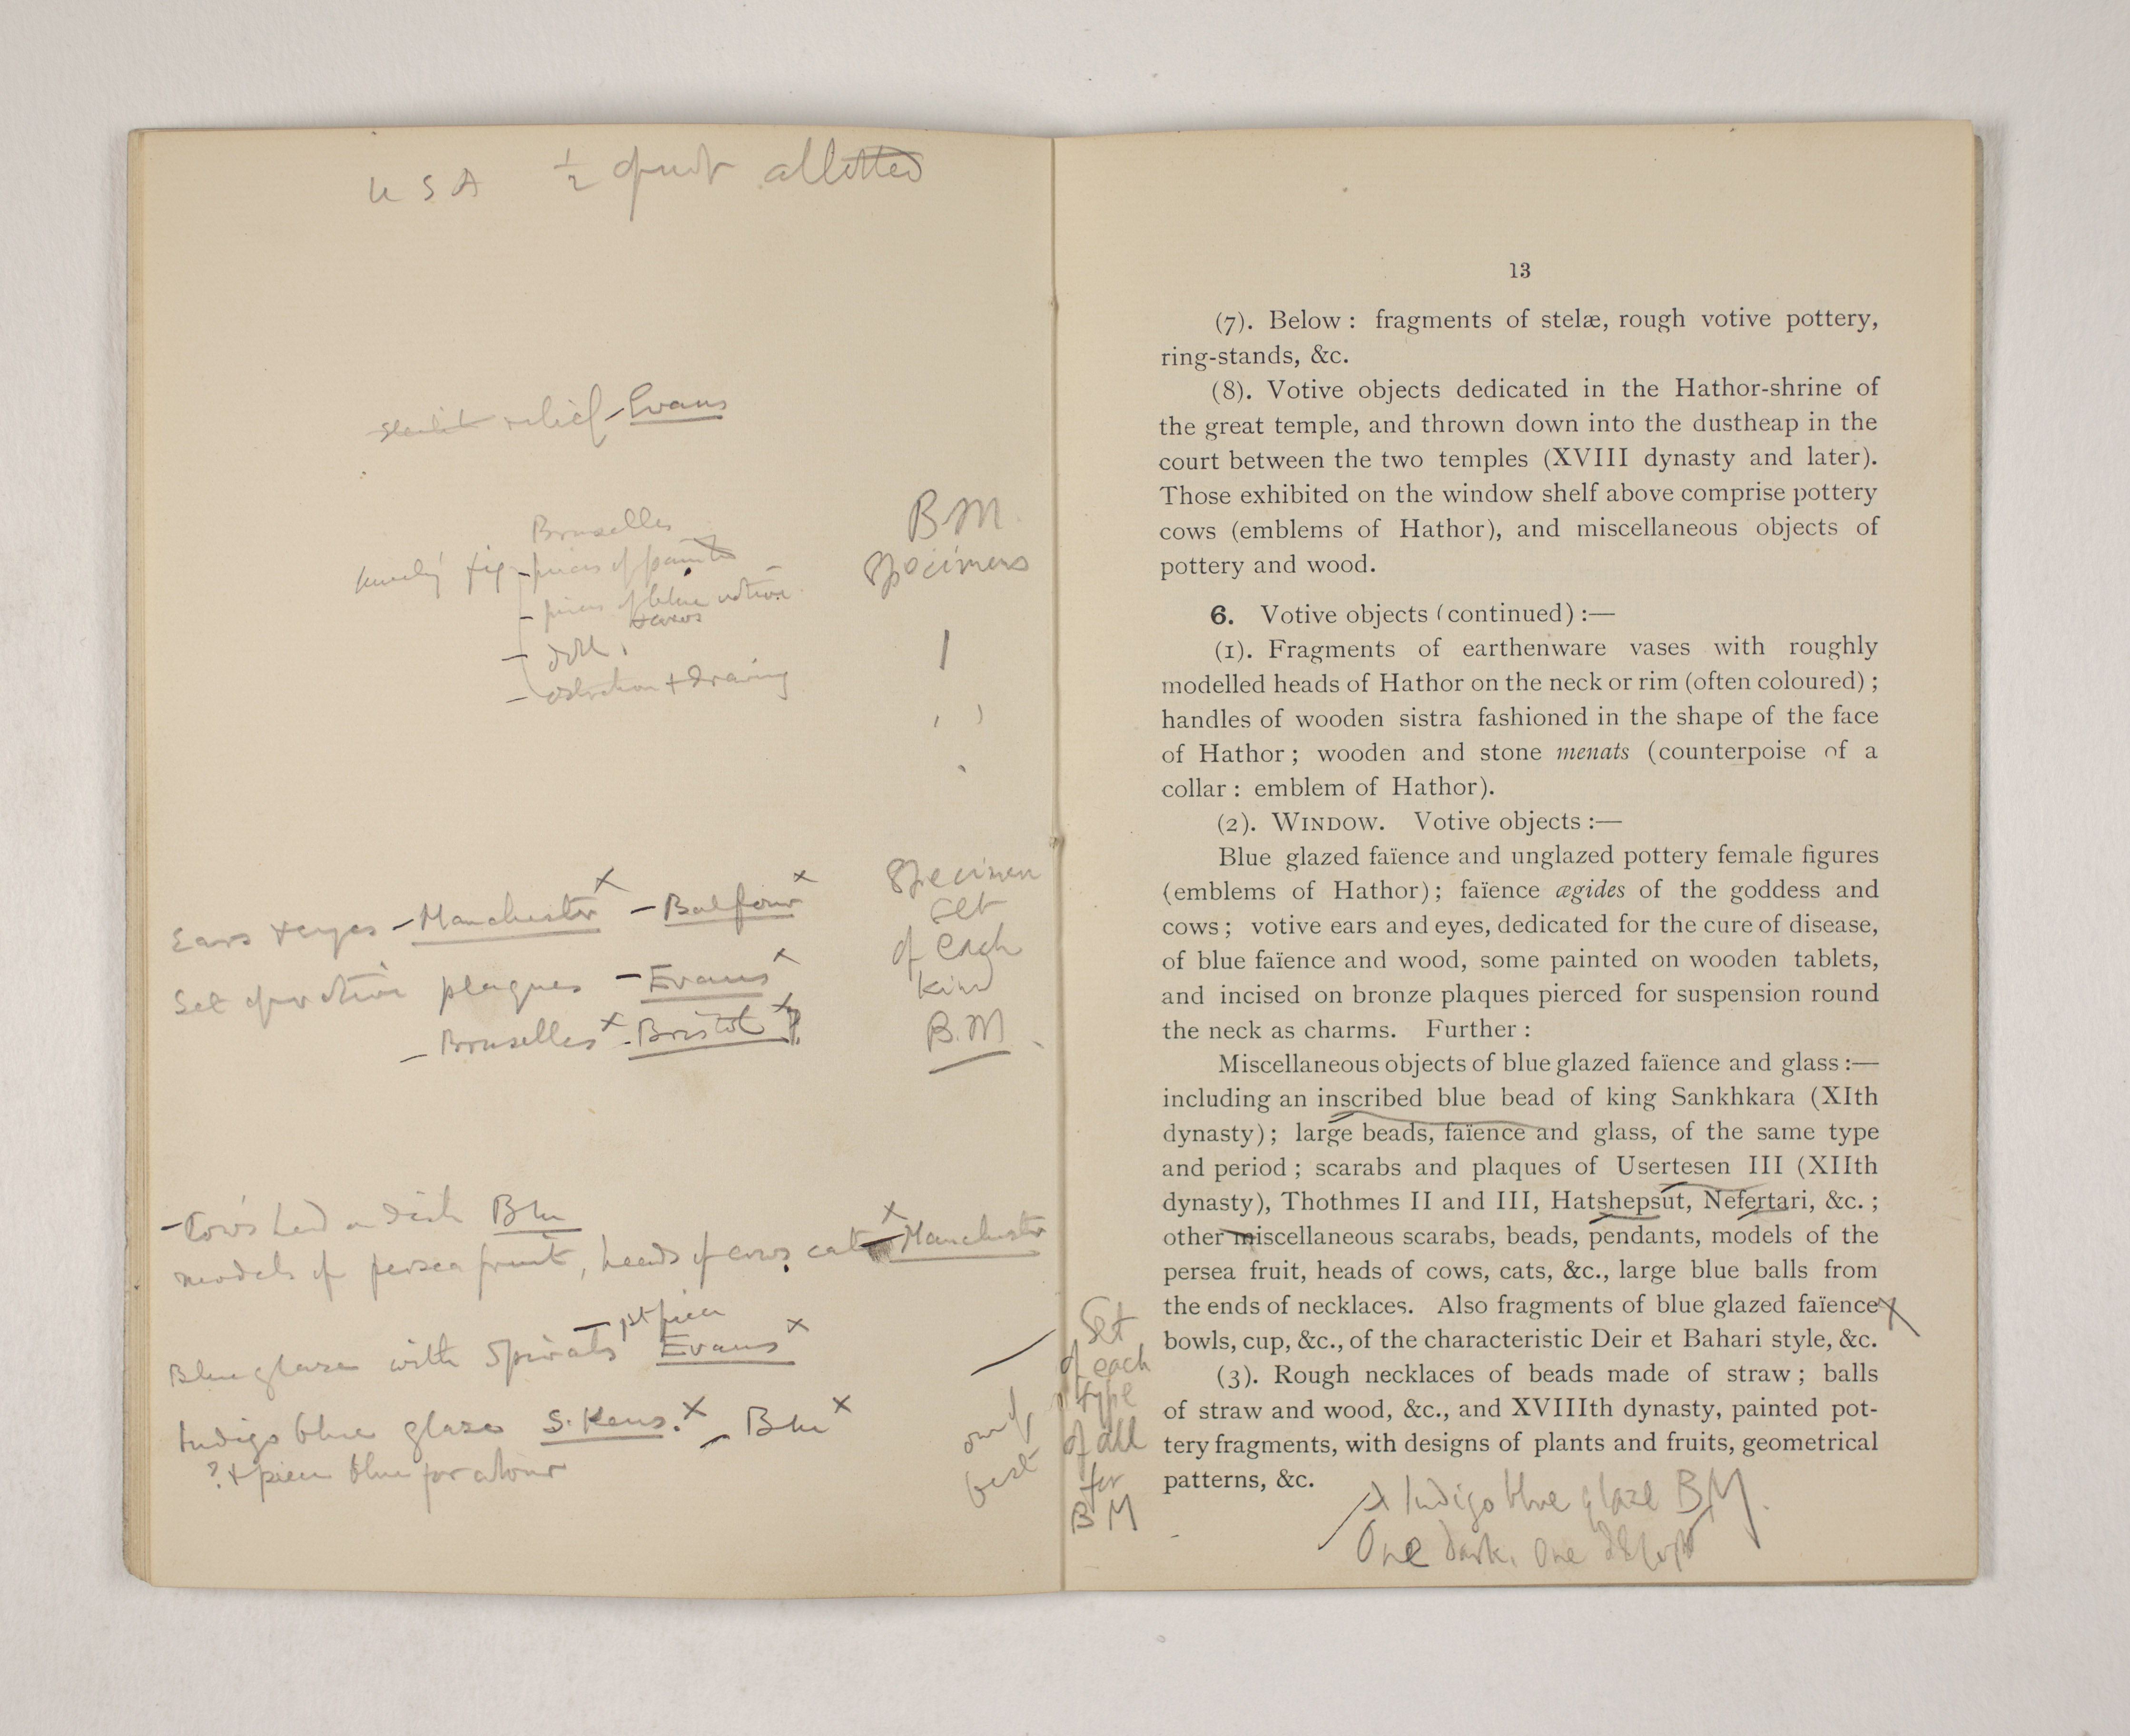 U S A ½ allotted
relief - Evans
Bruxelles
- pieces of
- pieces of blue votive
- + drawing
B M
Specimens
Ears & eyes - Manchester x - Balfour x
Set of votive plaques - Evans x
- Bruxelles x - Bristol x ?
Specimen
set
of each
kind
B.M
- Cow's head on dish Blu
models of persea fruit, heads of cows, cats x - Manchester
- 1st piece
Blue glaze with spirals Evans x
Indigo blue glaze S. Kens. x - Blu x
? + piece blue for
one of
best
Set
of each
type
of all
for
B M
13
(7). Below : fragments of stelæ, rough votive pottery,
ring-stands, &c.
(8). Votive objects dedicated in the Hathor-shrine of
the great temple, and thrown down into the dustheap in the
court between the two temples (XVIII dynasty and later).
Those exhibited on the window shelf above comprise pottery
cows (emblems of Hathor), and miscellaneous objects of
pottery and wood.
6. Votive objects (continued) :—
(1). Fragments of earthenware vases with roughly
modelled heads of Hathor on the neck or rim (often coloured) ;
handles of wooden sistra fashioned in the shape of the face
of Hathor ; wooden and stone menats (counterpoise of a
collar : emblem of Hathor).
(2). WINDOW. Votive objects :—
Blue glazed faïence and unglazed pottery female figures
(emblems of Hathor) ; faïence ægides of the goddess and
cows ; votive ears and eyes, dedicated for the cure of disease,
of blue faïence and wood, some painted on wooden tablets,
and incised on bronze plaques pierced for suspension round
the neck as charms. Further :
Miscellaneous objects of blue glazed faïence and glass :—
including an inscribed blue bead of king Sankhkara (XIth
dynasty) ; large beads, faïence and glass, of the same type
and period ; scarabs and plaques of Usertesen III (XIIth
dynasty), Thothmes II and III, Hatshepsut, Nefertari, &c. ;
other miscellaneous scarabs, beads, pendants, models of the
persea fruit, heads of cows, cats, &c., large blue balls from
the ends of necklaces. Also fragments of blue glazed faïence X
bowls, cup, &c., of the characteristic Deir et Bahari style, &c.
(3). Rough necklaces of beads made of straw ; balls
of straw and wood, &c., and XVIIIth dynasty, painted pot-
tery fragments, with designs of plants and fruits, geometrical
patterns, &c.
Indigo blue glaze BM.
One dark, One